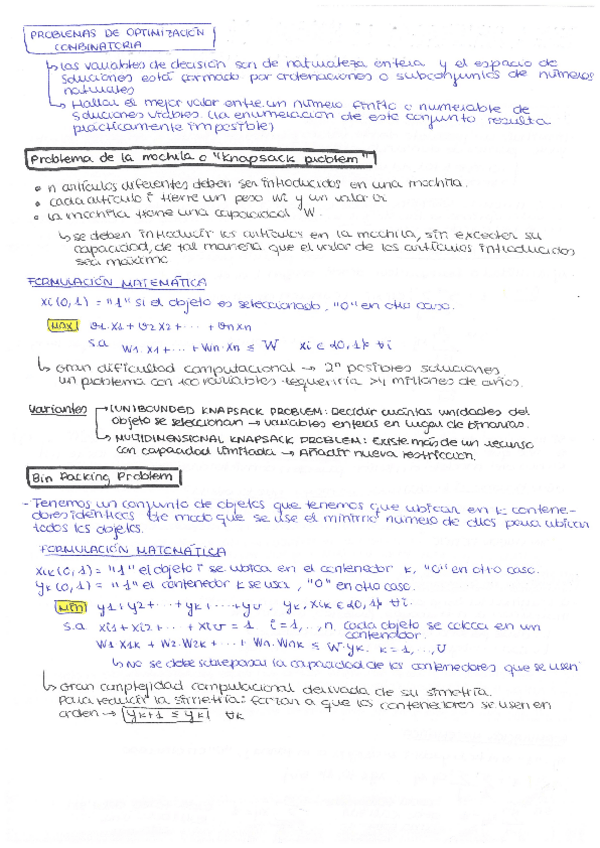 PROBLEMAS DE OPTIMIZACIÓN
COMBINATORIA
↳ las variables de decisión son de naturaleza entera y el espacio de
soluciones está formado por ordenaciones o subconjuntos de números
naturales
↳ Hallar el mejor valor entre un número finito o numerable de
soluciones viables (la enumeración de este conjunto resulta
prácticamente imposible)
Problema de la mochila o "Knapsack problem"
• n artículos diferentes deben ser introducidos en una mochila.
• cada artículo i tiene un peso wi y un valor vi
• la mochila tiene una capacidad W.
↳ se deben introducir los artículos en la mochila, sin exceder su
capacidad, de tal manera que el valor de los artículos introducidos
sea máximo
FORMULACIÓN MATEMÁTICA
xi (0,1) = "1" si el objeto es seleccionado, "0" en otro caso.
MAX v1·x1 + v2 x2 + ··· + vn xn
s.a w1·x1 + ··· + wn·xn ≤ W xi ∈ {0,1} ∀i
↳ Gran dificultad computacional → 2ⁿ posibles soluciones.
un problema con 100 variables requeriría >4 millones de años.
Variantes → UNBOUNDED KNAPSACK PROBLEM: Decidir cuántas unidades del
objeto se seleccionan → variables enteras en lugar de binarias.
↳ MULTIDIMENSIONAL KNAPSACK PROBLEM: Existe más de un recurso
con capacidad limitada → Añadir nueva restricción.
Bin Packing Problem
- Tenemos un conjunto de objetos que tenemos que ubicar en k contene-
dores idénticos de modo que se use el mínimo número de ellos para ubicar
todos los objetos.
FORMULACIÓN MATEMÁTICA
xik (0,1) = "1" el objeto i se ubica en el contenedor k, "0" en otro caso.
yk (0,1) = "1" el contenedor k se usa, "0" en otro caso.
MIN y1 + y2 + ··· + yk + ··· + yu, yk, xik ∈ {0,1} ∀i.
s.a xi1 + xi2 + ··· + xiu = 1 i = 1, .., n cada objeto se coloca en un
contenedor.
w1 x1k + w2·x2k + ··· + wn·xnk ≤ W·yk. k = 1, ..., U
↳ no se debe sobrepasar la capacidad de los contenedores que se usen
↳ Gran complejidad computacional derivada de su simetría.
Para reducir la simetría: forzar a que los contenedores se usen en
orden → yk+1 ≤ yk ∀k